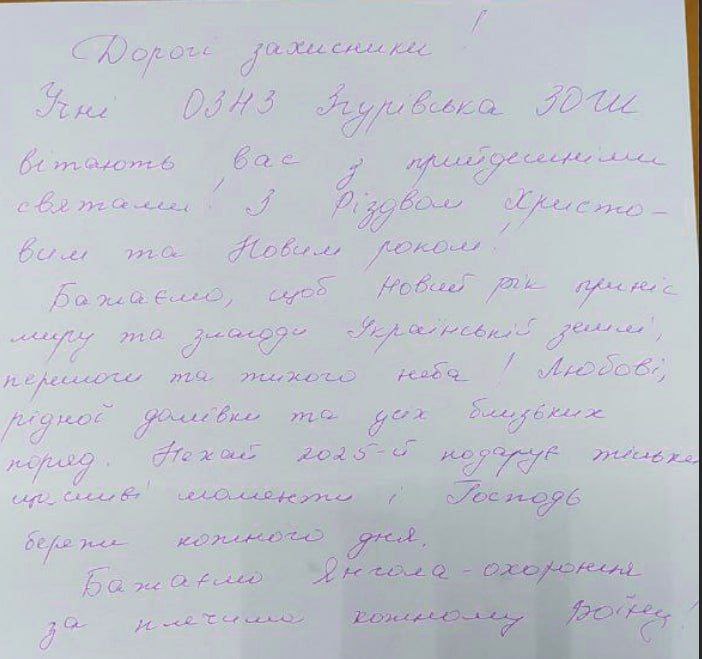 Дорогі захисники!
Учні ОЗНЗ Згурівська ЗОШ
вітають вас з прийдешніми
святами! З Різдвом Христо-
вим та Новим роком!
Бажаємо, щоб Новий рік приніс
миру та злагоди Українській землі,
перемоги та тихого неба! Любові,
рідної домівки та усіх близьких
поряд. Нехай 2025-й подарує тільки
щасливі моменти і Господь
береже кожного дня.
Бажаємо Янгола-охоронця
за плечима кожному Воїну!